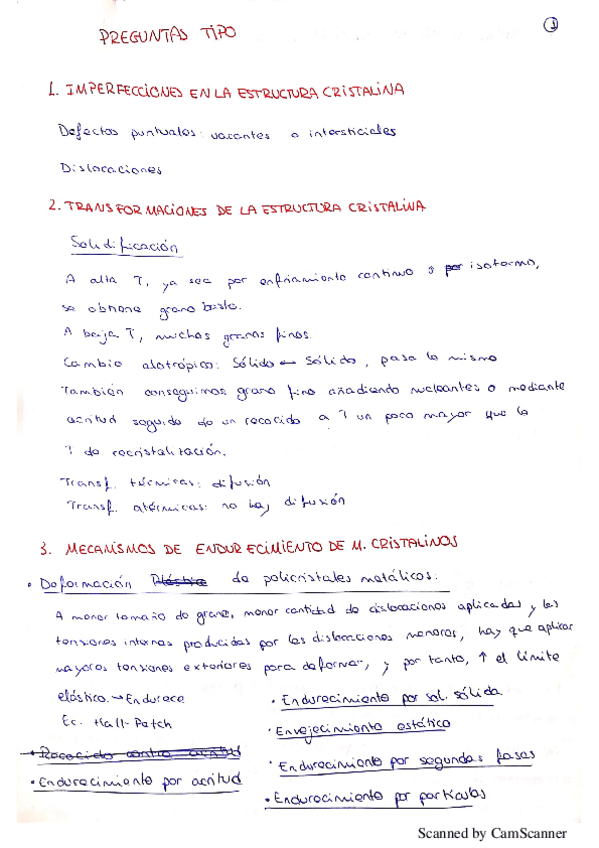 PREGUNTAS TIPO
1
1. IMPERFECCIONES EN LA ESTRUCTURA CRISTALINA
Defectos puntuales: vacantes o intersticiales
Dislocaciones
2. TRANSFORMACIONES DE LA ESTRUCTURA CRISTALINA
Solidificación
A alta T, ya sea por enfriamiento continuo o por isotermo,
se obtiene grano basto.
A baja T, muchos granos finos.
Cambio alotrópico: Sólido ← Sólido, pasa lo mismo
También conseguimos grano fino añadiendo nucleantes o mediante
acritud seguido de un recocido a T un poco mayor que la
T de recristalización.
Transf. térmicas: difusión
Transf. atérmicas: no hay difusión
3. MECANISMOS DE ENDURECIMIENTO DE M. CRISTALINOS
• Deformación Plástica de policristales metálicos:
A menor tamaño de grano, menor cantidad de dislocaciones aplicadas y las
tensiones internas producidas por las dislocaciones menores, hay que aplicar
mayores tensiones exteriores para deformar, y por tanto, ↑ el límite
elástico. → Endurece
Ec. Hall-Petch
• Recocido contra acritud
• Endurecimiento por acritud
• Endurecimiento por sol. sólida
• Envejecimiento estático
• Endurecimiento por segundas fases
• Endurecimiento por partículas
Scanned by CamScanner